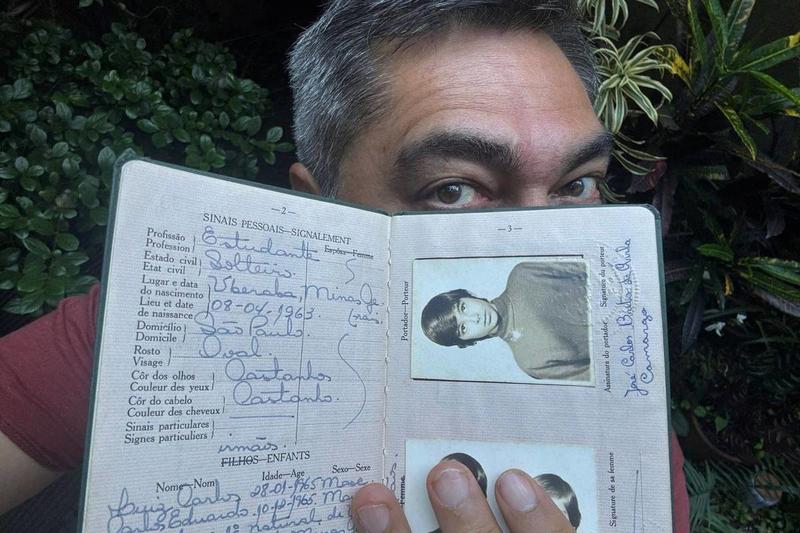 —2—
SINAIS PESSOAIS—SIGNALEMENT
Espôsa—Femme
Profissão
Profession
Estudante
Estado civil
Etat civil
Solteiro.
Lugar e data
do nascimento
Lieu et date
de naissance
Uberaba, Minas Ge
rais.
08-04-1963.
Domicílio
Domicile
São Paulo.
Rosto
Visage
Oval.
Côr dos olhos
Couleur des yeux
Castanhos
Côr do cabelo
Couleur des cheveux
Castanho.
Sinais particulares
Signes particuliers
irmãos.
FILHOS—ENFANTS
Nome—Nom Idade—Age Sexo—Sexe
Luiz Carlos 28-01-1965 Masc
Carlos Eduardo. 10-10-1965. Ma
natural de
—3—
Portador—Porteur
Assinatura do portador
Signature du porteur
José Carlos
Camargo
Femme
Signature de sa femme